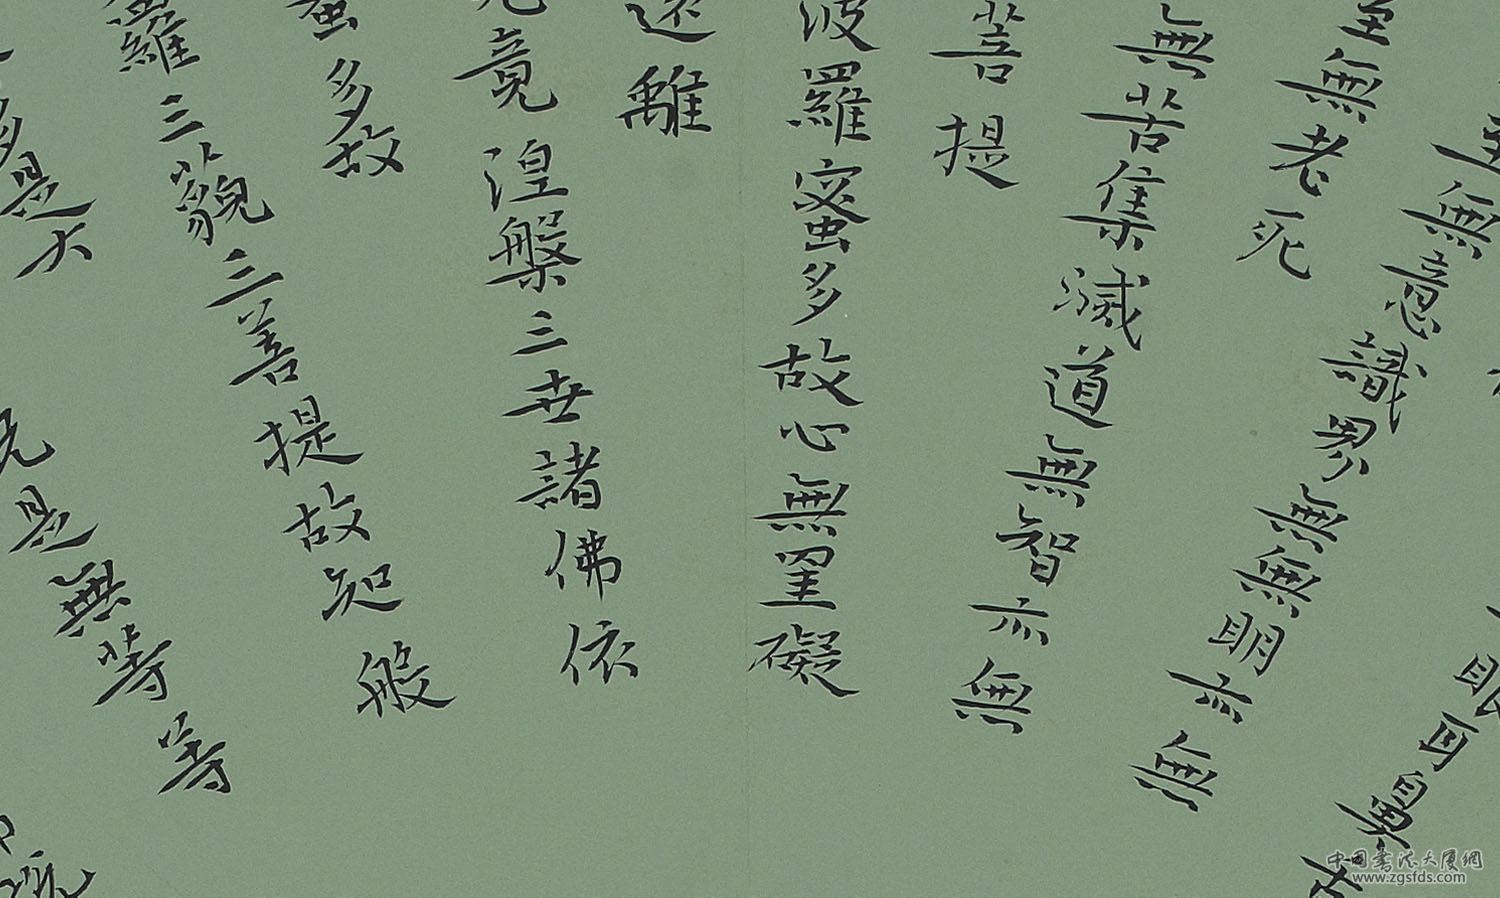 眼耳鼻舌
至無意識界無無明亦無
至無老死
無苦集滅道無智亦無
菩提
波羅蜜多故心無罣礙
遠離
究竟涅槃三世諸佛依
蜜多故
羅三藐三菩提故知般
多是大
咒是無等等
中国書法大厦網
www.zgsfds.com